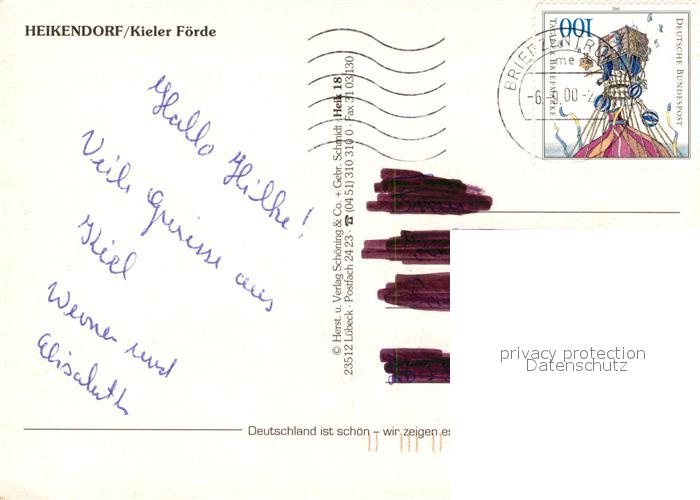 HEIKENDORF/Kieler Förde
Hallo Hilke!
Viele Grüsse aus
Kiel
Werner und
Elisabeth
© Herst. u. Verlag Schöning & Co. + Gebr. Schmidt · Heik 18
23512 Lübeck · Postfach 24 23 · ☎ (04 51) 310 310 0 · Fax 31 03 130
BRIEFZENTRUM
-6.
.00-
100
TAG DER BRIEFMARKE
DEUTSCHE BUNDESPOST
privacy protection
Datenschutz
Deutschland ist schön – wir zeigen es